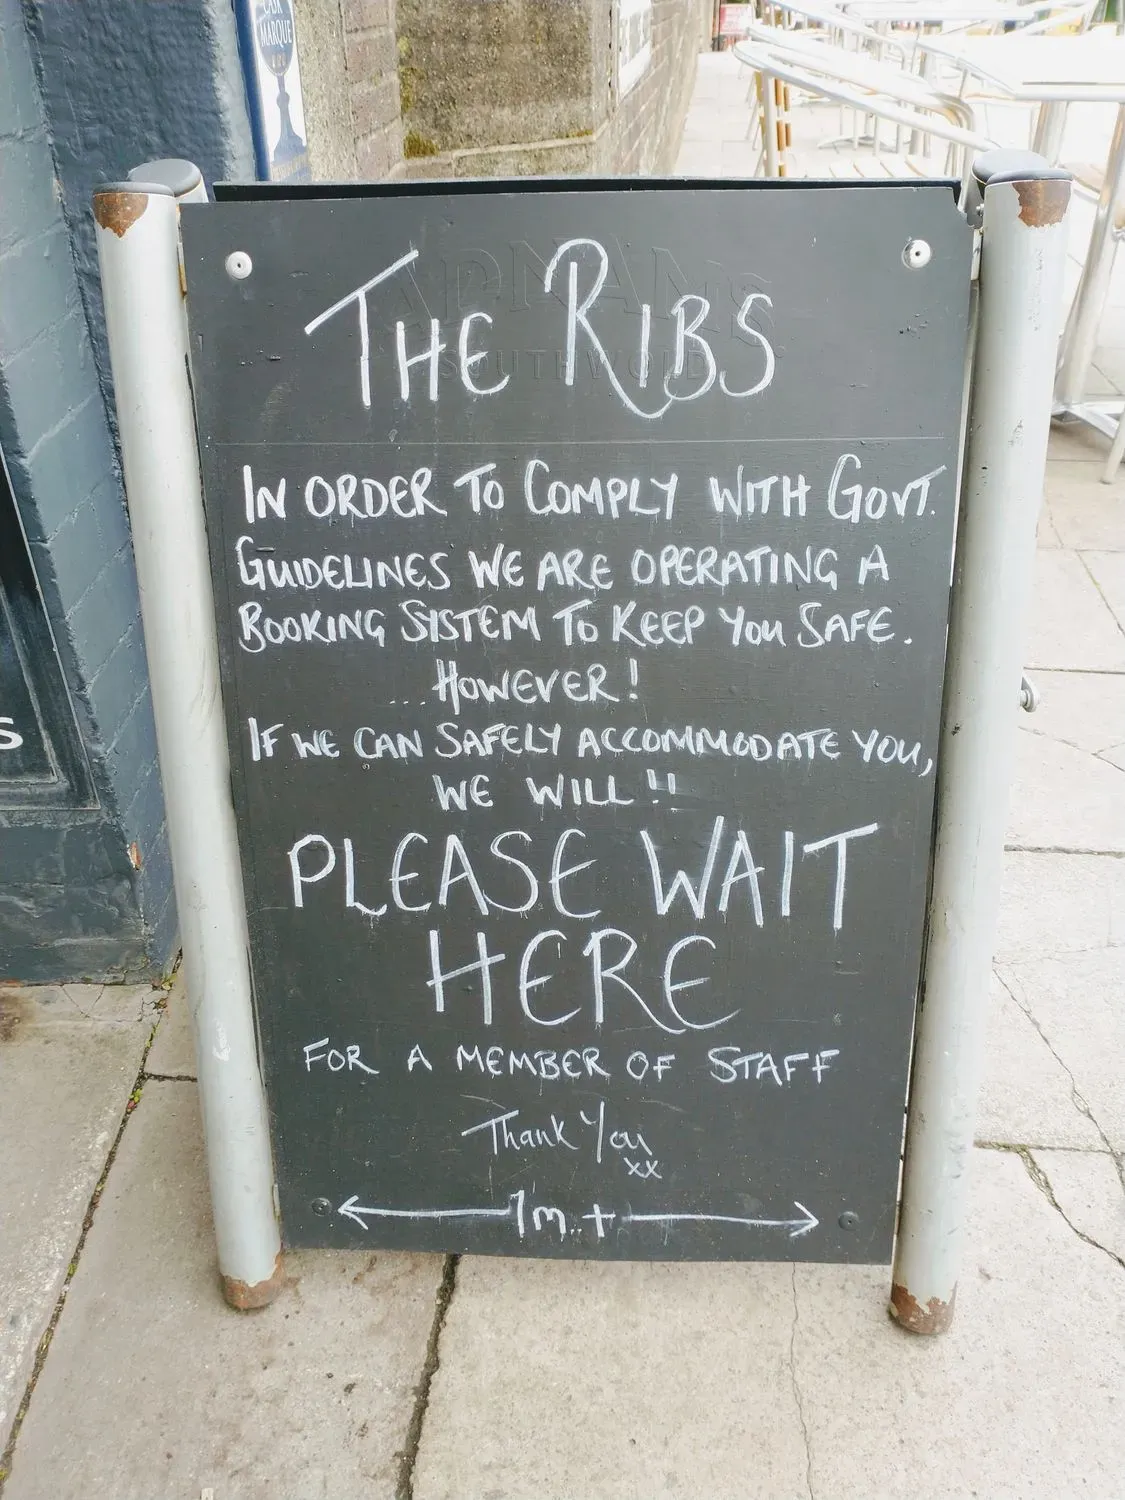 CASK
MARQUE
ADNANS
SOUTHWOLD
THE RIBS
IN ORDER TO COMPLY WITH GOVT.
GUIDELINES WE ARE OPERATING A
BOOKING SYSTEM TO KEEP YOU SAFE.
... HOWEVER!
IF WE CAN SAFELY ACCOMMODATE YOU,
WE WILL!!
PLEASE WAIT
HERE
FOR A MEMBER OF STAFF
Thank You
xx
1m+
S